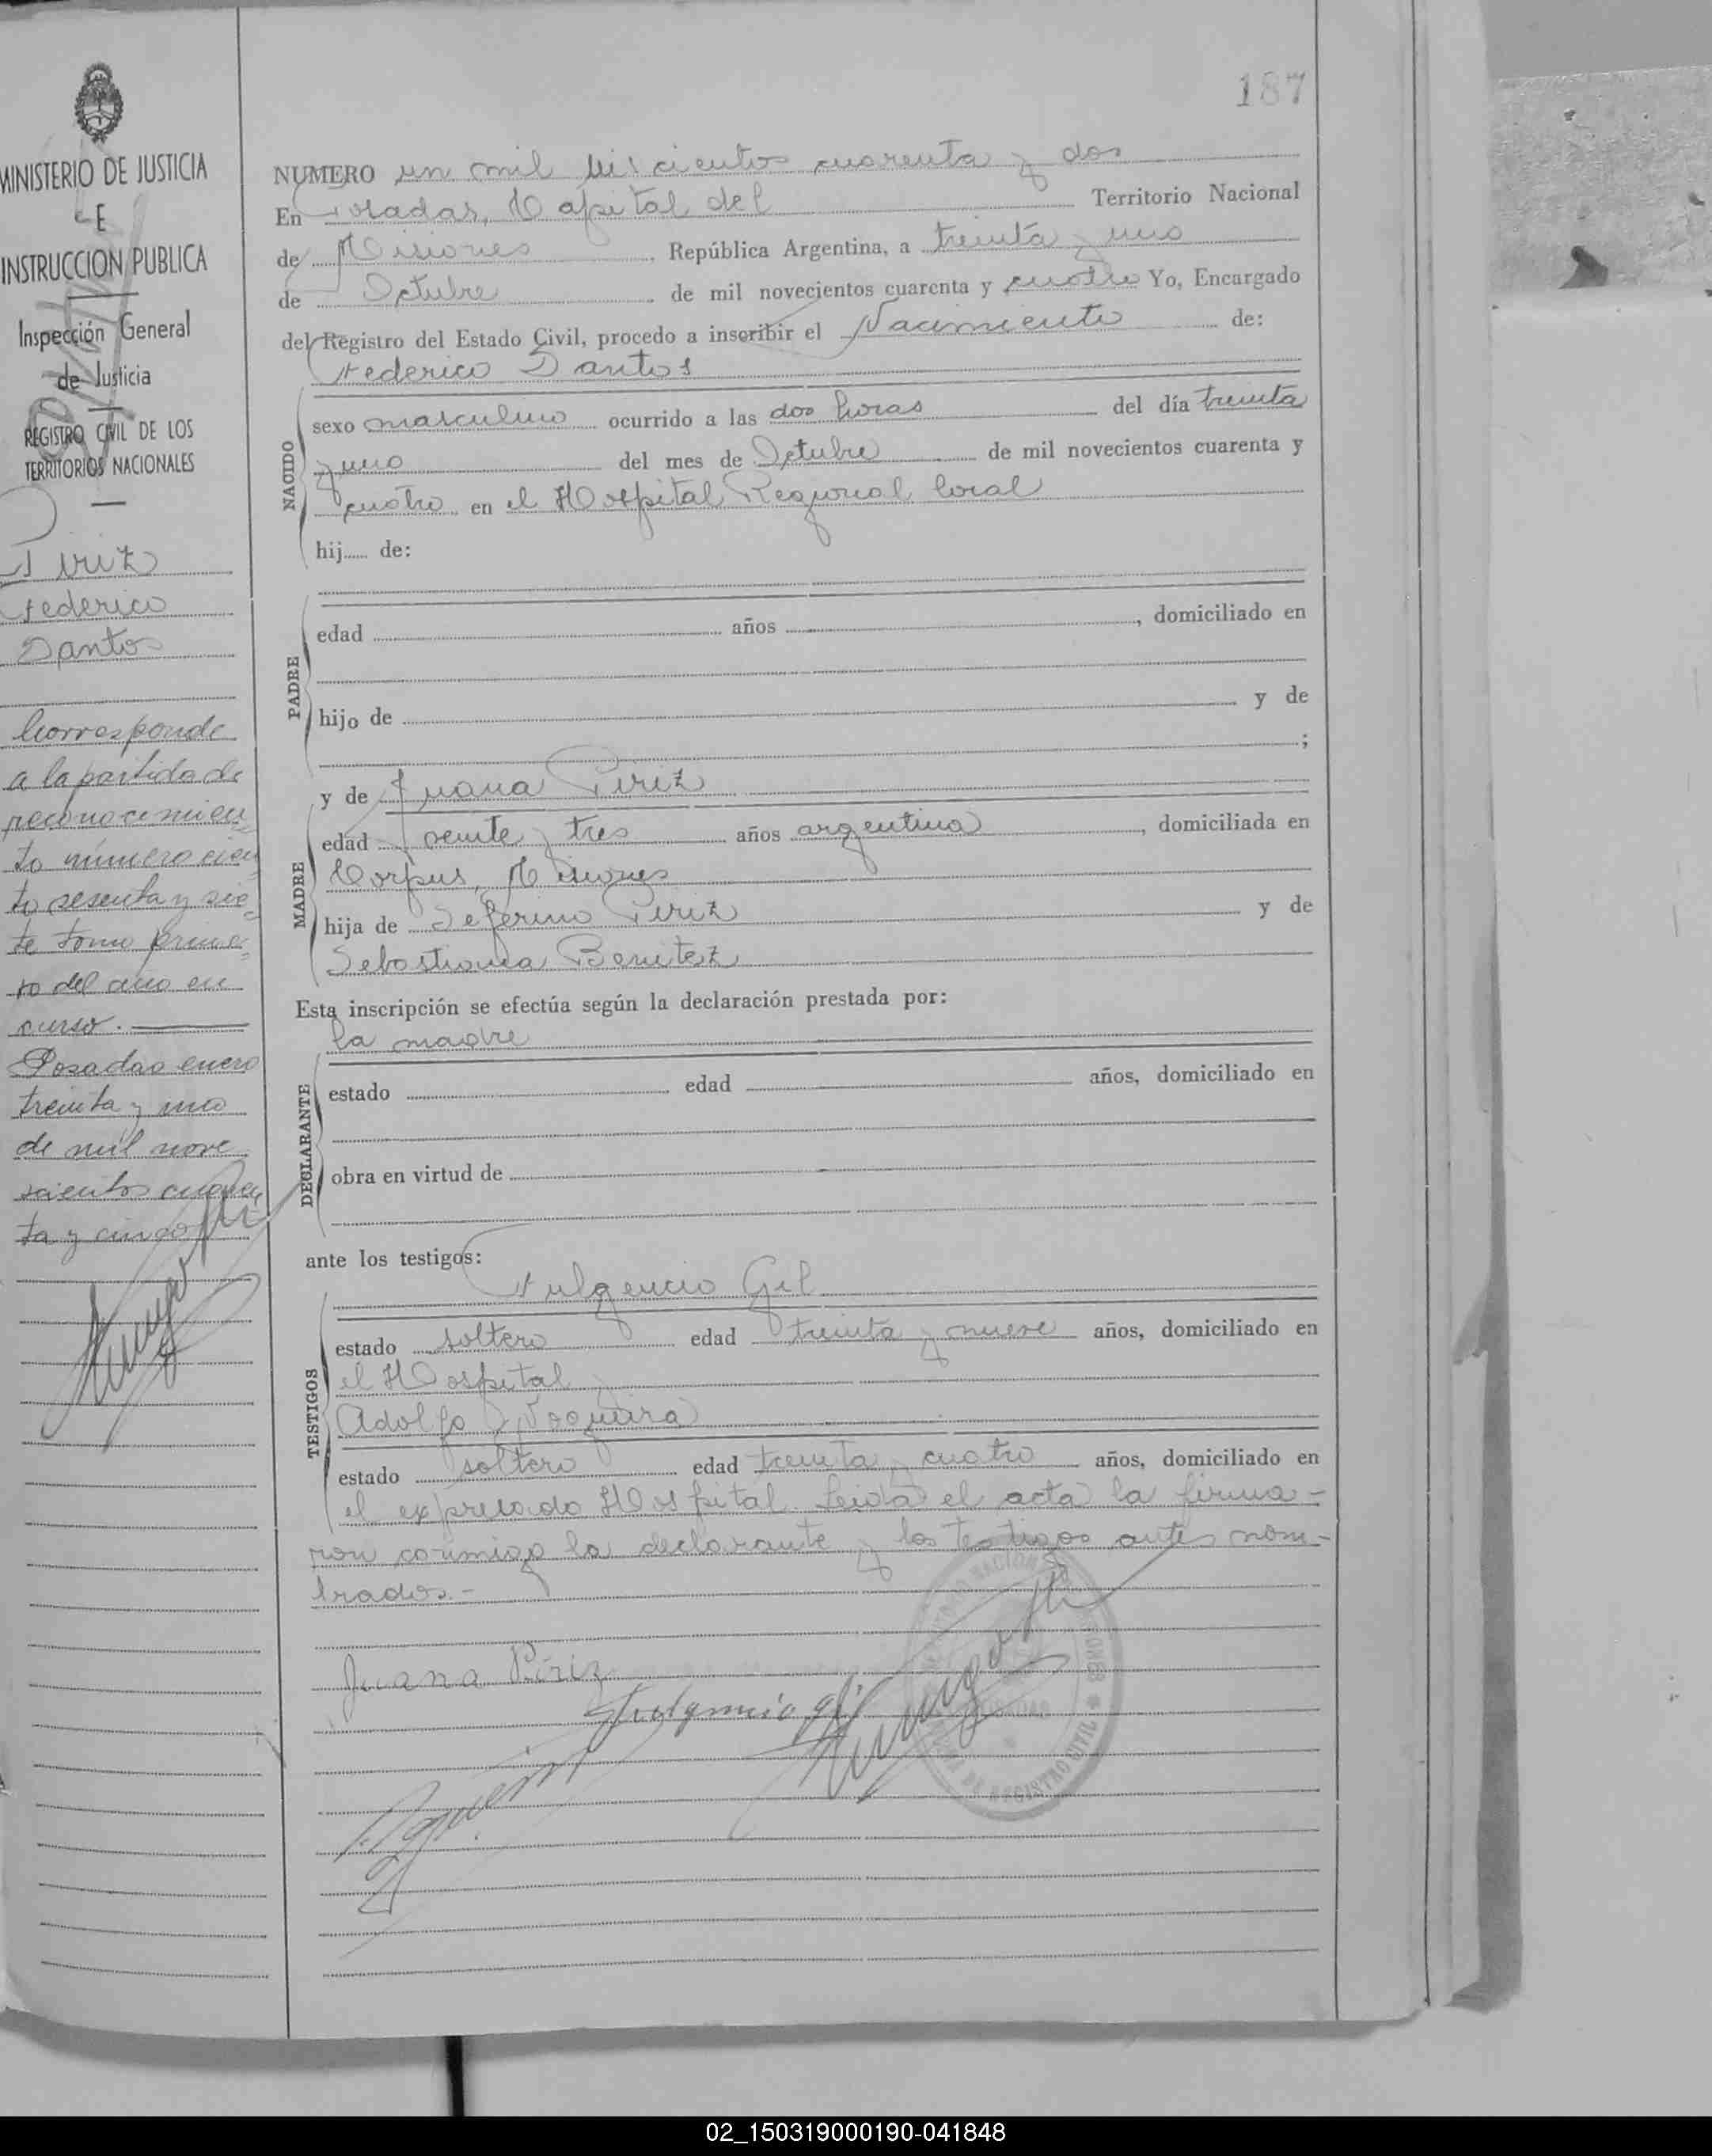 187
MINISTERIO DE JUSTICIA
E
INSTRUCCION PUBLICA
Inspección General
de Justicia
REGISTRO CIVIL DE LOS
TERRITORIOS NACIONALES
Piriz
Federico
Santos
Corresponde
a la partida de
reconocimien
to número cien
to sesenta y sie
te tomo prime
ro del año en
curso.
Posadas enero
treinta y uno
de mil nove
scientos cuaren
ta y cinco
NUMERO un mil seiscientos cuarenta y dos
En Posadas, Capital del Territorio Nacional
de Misiones República Argentina, a treinta y uno
de Octubre de mil novecientos cuarenta y cuatro Yo, Encargado
del Registro del Estado Civil, procedo a inscribir el Nacimiento de:
Federico Santos
NACIDO
sexo masculino ocurrido a las dos horas del día treinta
y uno del mes de Octubre de mil novecientos cuarenta y
cuatro en el Hospital Regional local
hij de:
PADRE
edad años , domiciliado en
hijo de y de
;
y de Juana Piriz
MADRE
edad veinte y tres años argentina, domiciliada en
Corpus, Misiones
hija de Seferino Piriz y de
Sebastiana Benitez
Esta inscripción se efectúa según la declaración prestada por:
la madre
DECLARANTE
estado edad años, domiciliado en
obra en virtud de
ante los testigos:
Fulgencio Gil
TESTIGOS
estado soltero edad treinta y nueve años, domiciliado en
el Hospital y
Adolfo Noguera
estado soltero edad treinta y cuatro años, domiciliado en
el expresado Hospital. Leida el acta la firma-
ron conmigo la declarante y los testigos antes nom-
brados.-
Juana Piriz
Fulgencio Gil
REGISTRO CIVIL
02_150319000190-041848